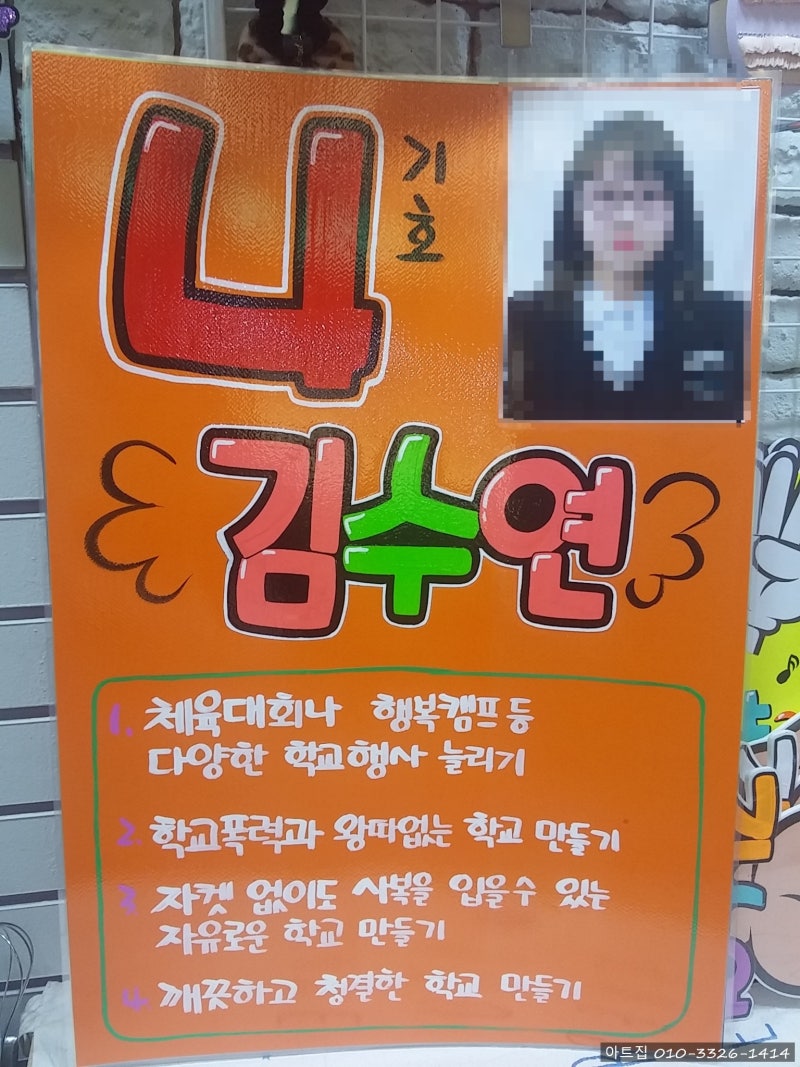 기호
4
김수연
1. 체육대회나 행복캠프 등
다양한 학교행사 늘리기
2. 학교폭력과 왕따없는 학교 만들기
3. 자켓 없이도 사복을 입을 수 있는
자유로운 학교 만들기
4. 깨끗하고 청결한 학교 만들기
아트집 010-3326-1414